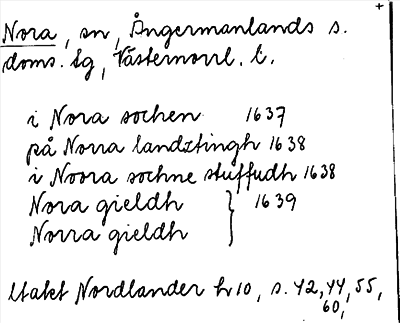 Nora, sn, Ångermanlands s.
doms. sg, Västernorrl. l.
i Nora sochen 1637
på Norra landztingh 1638
i Noora sochne stuffudh 1638
Nora gieldh } 1639
Norra gieldh
Utakt Nordlander hr 10, s. 42, 44, 55,
60,